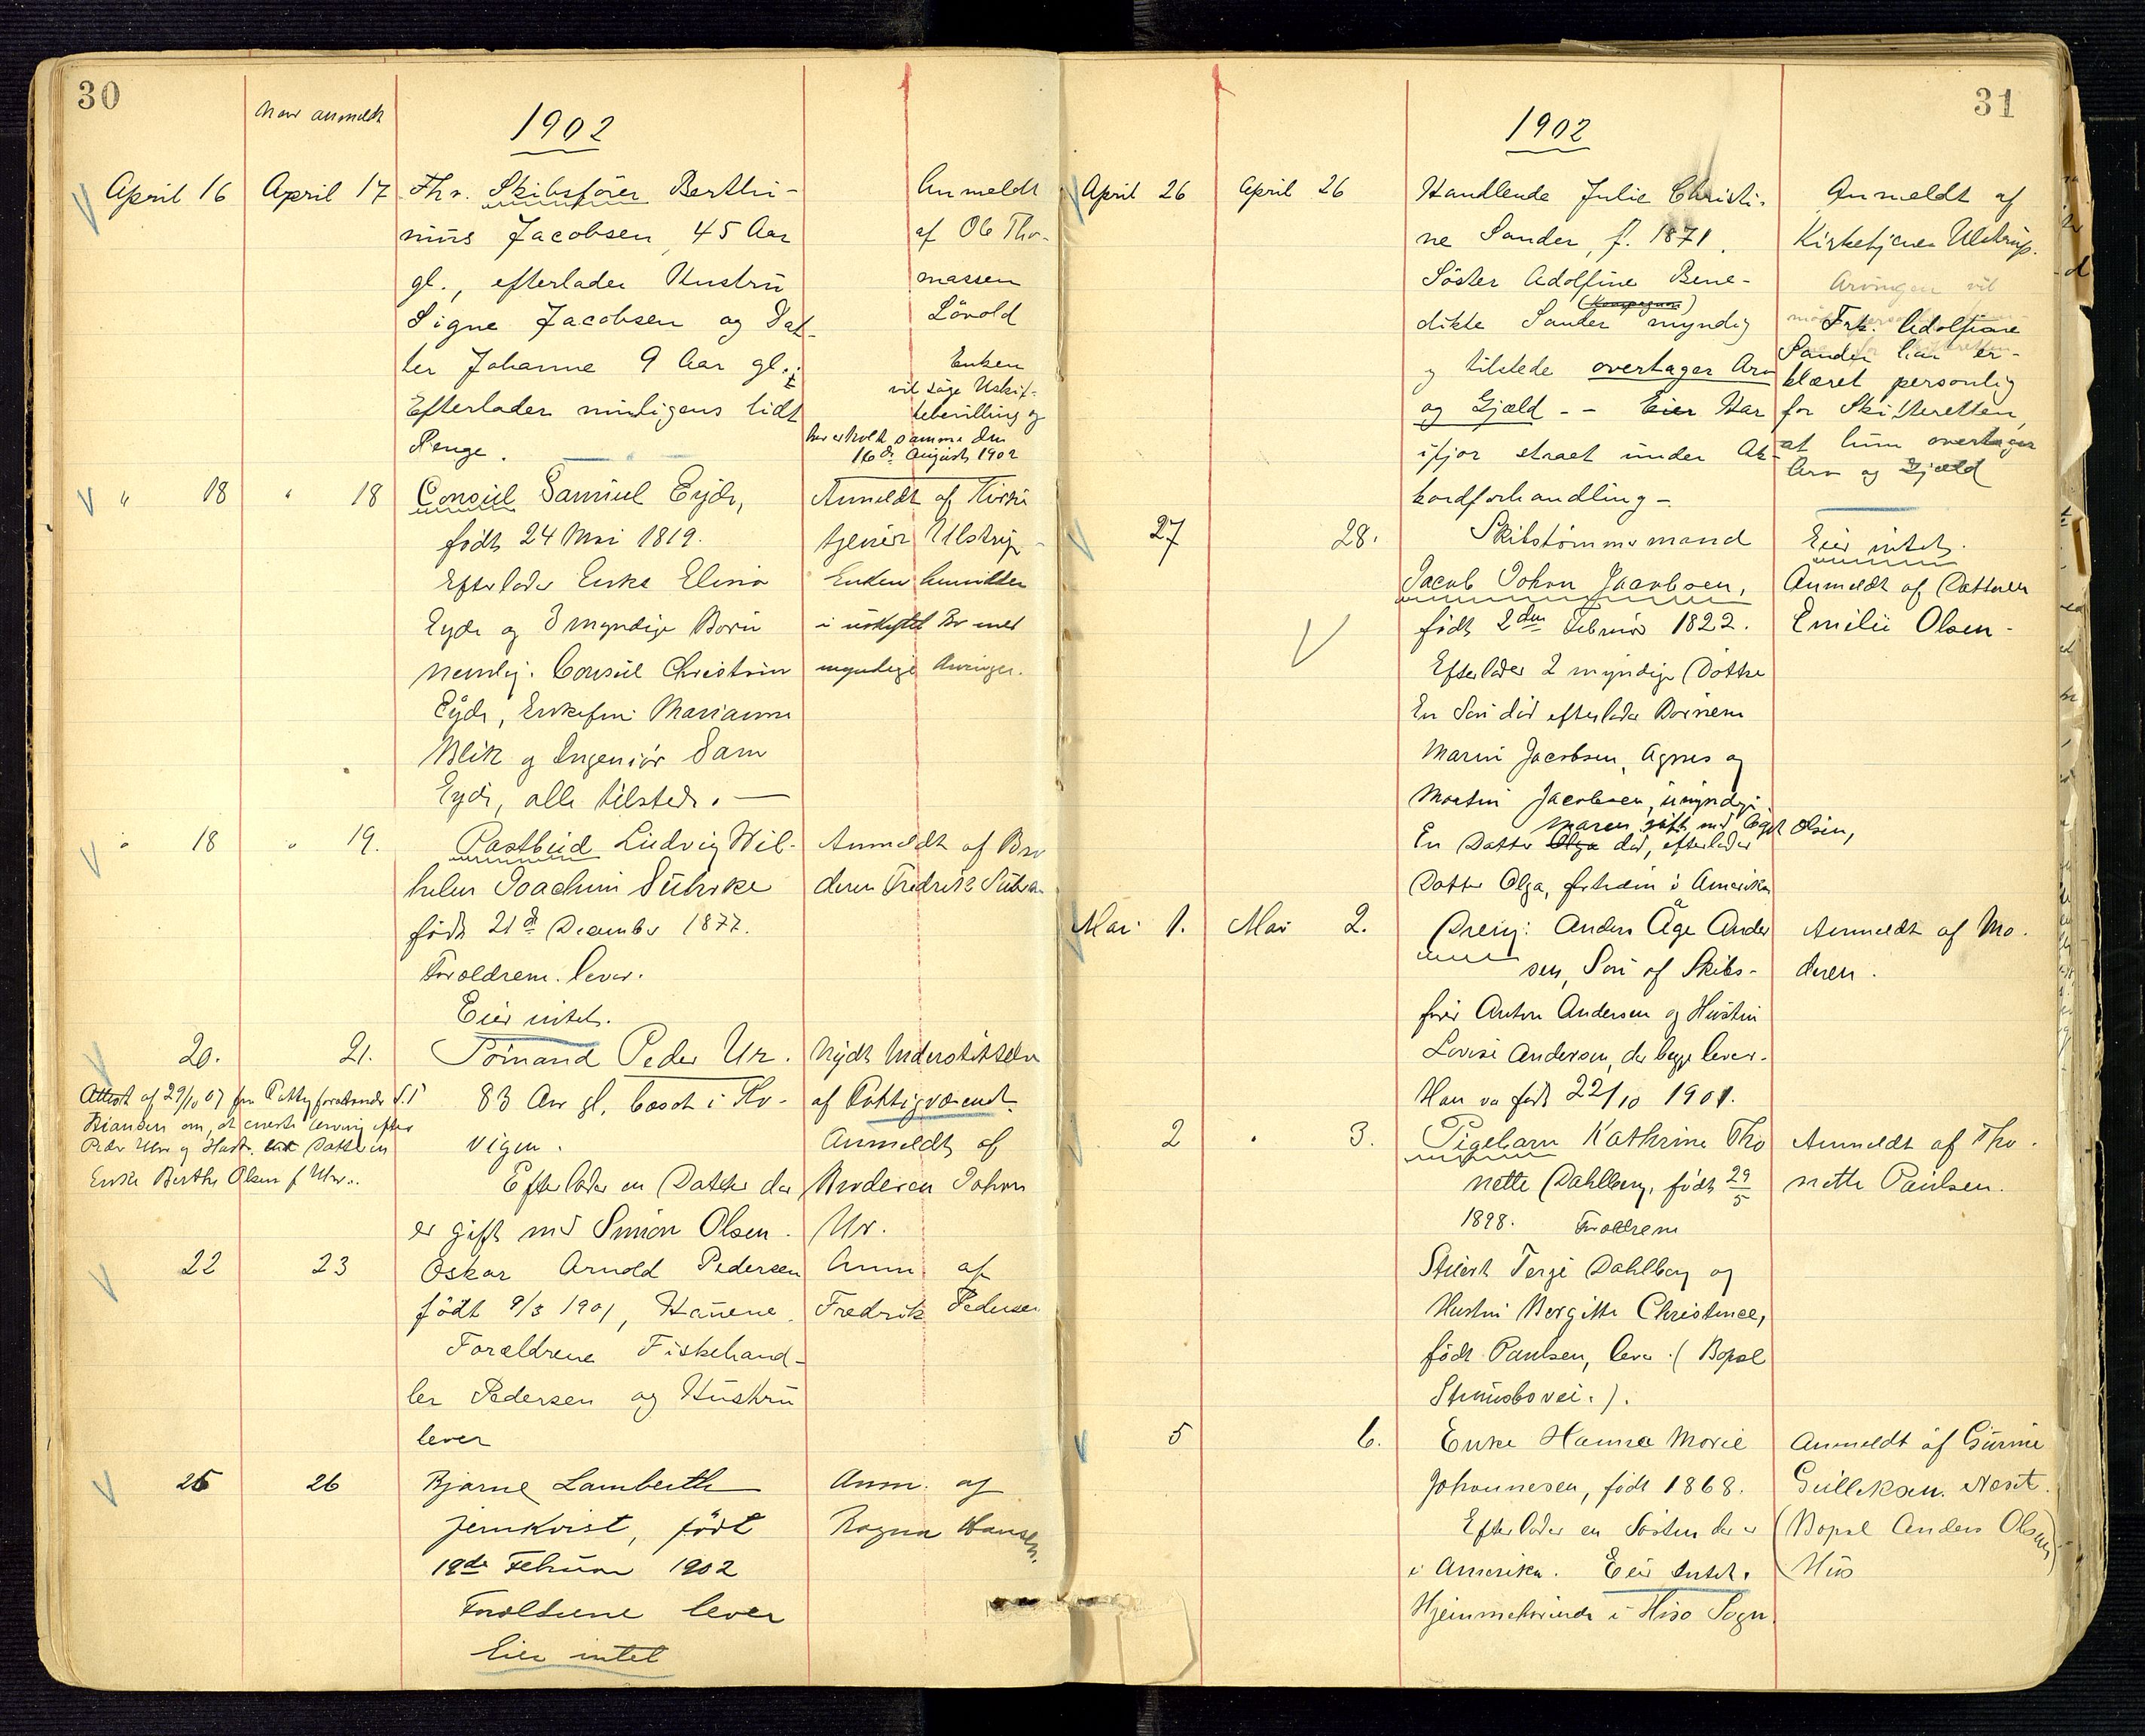 30
Naar anmeldt
1902
April 16 April 17 Fhv. Skibsfører Berthi-
nius Jacobsen 45 Aar
gl., efterlader Hustru
Signe Jacobsen og Dat-
ter Johanne 9 Aar gl.
Efterlader muligens lidt
Penge.
Anmeldt
af Ole Tho-
massen
Løvold
Enken
vil søge Uskif-
tebevilling og
har erholdt samme den
16de August 1902
" 18 " 18 Consul Samuel Eyde,
født 24 Mai 1819.
Efterlader Enke Elina
Eyde og 3 myndige Børn
nemlig: Consul Christian
Eyde, Enkefru Marianne
Blik og Ingeniør Sam
Eyde, alle tilstede. —
Anmeldt af Kirke
tjener Ulstrup
Enken hensidder
i uskiftet Bo med
myndige Arvinger.
" 18 " 19. Postbud Ludvig Wil-
helm Joachim Suhrke
født 21de December 1877.
Forældrene lever.
Eier intet.
Anmeldt af Bro
deren Fredrik Suhrke
20. 21. Sømand Peder Ur.
83 Aar gl. bosat i
vigen.
Efterlader en Datter der
er gift med Simon Olsen.
Nydt Understøttelse
af Fattigvæsenet.
Anmeldt af
Broderen Johan
Ur.
Attest af 29/10 07 fra Fattigforstander
om, at eneste Arving efter
Peder Ur og Hustr. er Datteren
Enke Berthe Olsen f Ur.
22 23 Oskar Arnold Pedersen
født 9/3 1901,
Forældrene Fiskehand-
ler Pedersen og Hustru
lever
Anm. af
Fredrik Pedersen
25 26 Bjarne Lamberth
Jernkvist, født
19de Februar 1902
Forældrene lever
Eier intet
Anm. af
Ragna Hansen.
31
1902
April 26 April 26 Handlende Julie Christi-
ne Sander, f. 1871.
Søster Adolfine Bene-
(Kompagnon)
dikte Sander myndig
og tilstede overtager Arv
og Gjæld - - Eier Har
ifjor staaet under Ak-
kordforhandling -
Anmeldt af
Kirketjener Ulstrup.
Arvingen vil
Frk. Adolfine
Sander har er-
klæret personlig
for Skifteretten,
at hun overtager
Arv og Gjæld
27 28. Skibstømmermand
Jacob Johan Jacobsen,
født 2den Februar 1822.
Efterlader 2 myndige Døttre
En Søn død efterlader Børnene
Marie Jacobsen, Agnes og
Martin Jacobsen, umyndige.
Maren gift med Capt Olsen,
En Datter Olga død, efterlader
Datter Olga, forhen i Amerika
Eier intet.
Anmeldt af Datteren
Emilie Olsen -
Mai 1. Mai 2. Dreng: Anders Åge Ander
sen, Søn af Skibs-
fører Anton Andersen og Hustru
Lovise Andersen, der begge lever.
Han var født 22/10 1901.
Anmeldt af Mo-
deren.
2 " 3. Pigebarn Kathrine Tho
nette Dahlberg, født 29/5
1898. Forældrene
Stuert Terje Dahlberg og
Hustru Bergitte Christence,
født Paulsen, lever. (Bopæl
Strømsbovei.).
Anmeldt af Tho-
nette Paulsen.
5 6. Enke Hanna Marie
Johannesen, født 1868.
Efterlader en Søster der er
i Amerika. Eier Intet.
Hjemmehørende i Hisø Sogn.
Anmeldt af Gurine
Gulleksen. Neset.
(Bopæl Anders Olsens)
Hus